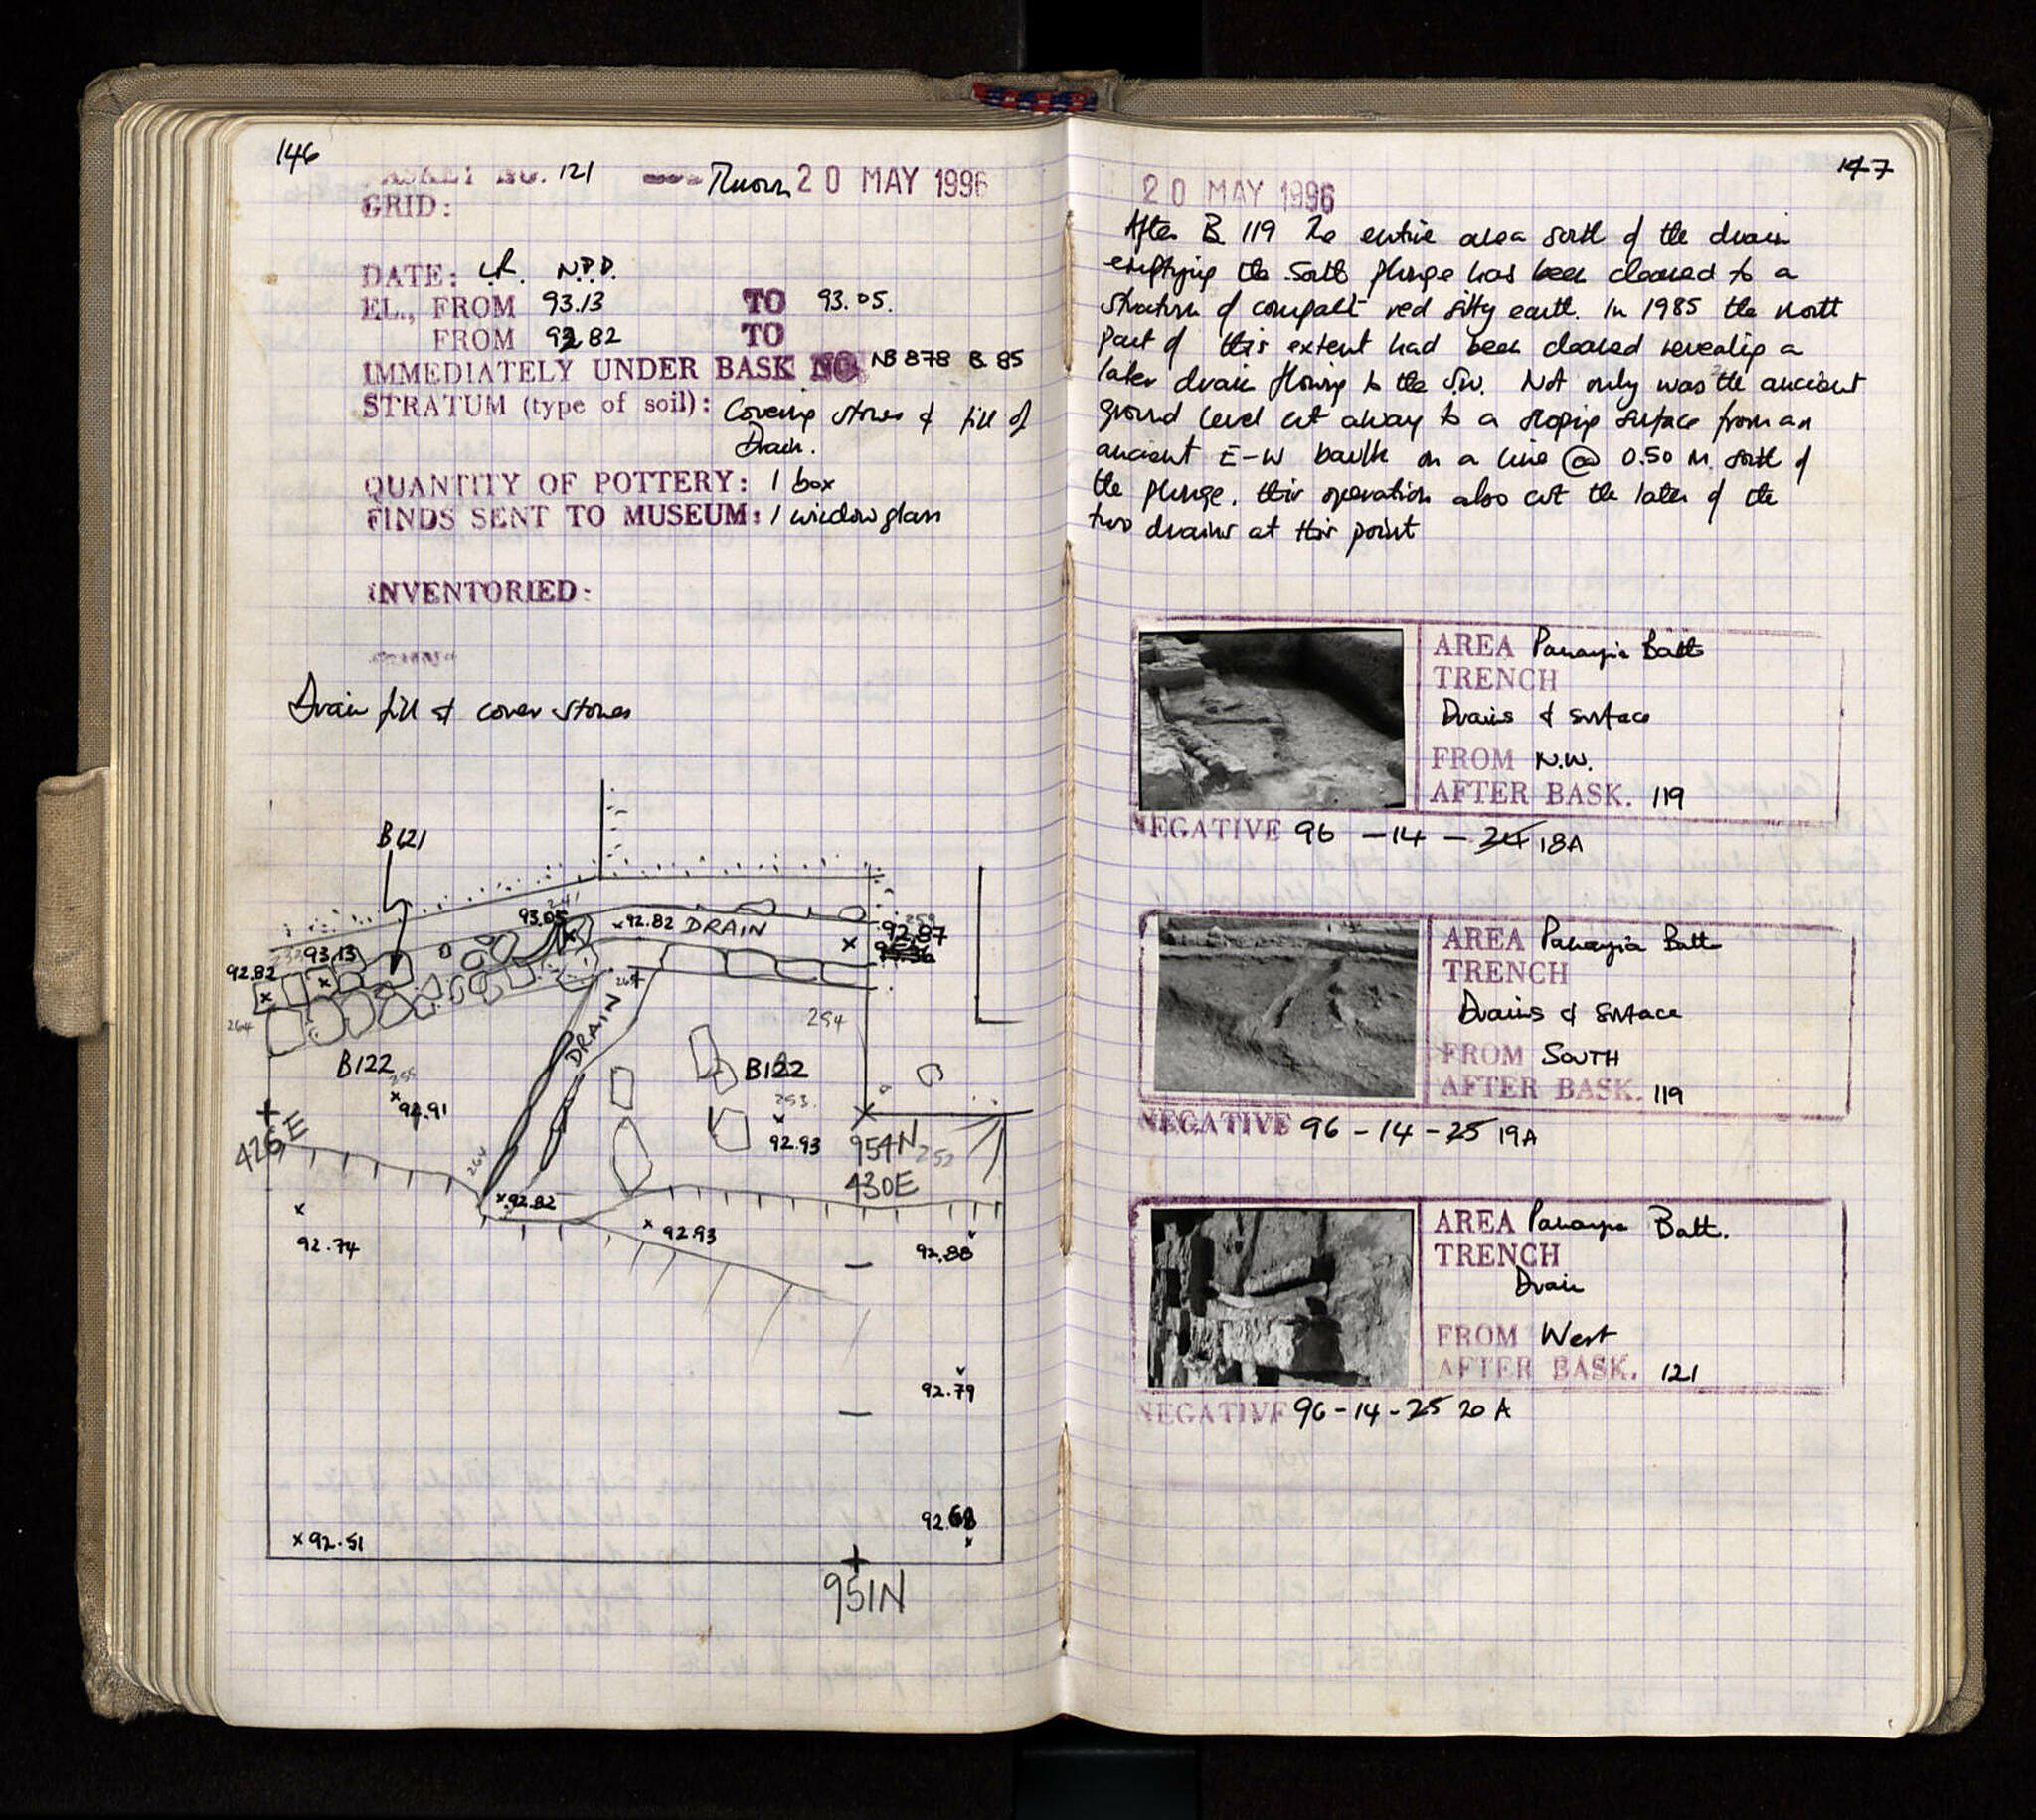 146
BASKET NO. 121 20 MAY 1996
GRID:
DATE: LR. N.P.D.
EL., FROM 93.13 TO 93.05.
FROM 92.82 TO
IMMEDIATELY UNDER BASK NO. NB 878 B. 85
STRATUM (type of soil): Covering stones & fill of
Drain.
QUANTITY OF POTTERY: 1 box
FINDS SENT TO MUSEUM: 1 window glass
INVENTORIED:
Drain fill & cover stones
B121
241
93.05
92.82 DRAIN
259
92.87
93.13
92.82
264
264
DRAIN
254
B122
B122
255
92.91
253
92.93
426E
954N 252
430E
264
92.82
92.93
92.74
92.88
92.79
92.68
92.51
951N
147
20 MAY 1996
After B. 119 the entire area south of the drain
emptying the South plunge has been cleared to a
stratum of compact red silty earth. In 1985 the north
part of this extent had been cleared revealing a
later drain flowing to the S.W. Not only was the ancient
ground level cut away to a sloping surface from an
ancient E-W baulk on a line @ 0.50 M. south of
the plunge. this operation also cut the later of the
two drains at this point
AREA Panayia Bath
TRENCH
Drains & surface
FROM N.W.
AFTER BASK. 119
NEGATIVE 96 - 14 - 24 18A
AREA Panayia Bath
TRENCH
Drains & surface
FROM SOUTH
AFTER BASK. 119
NEGATIVE 96 - 14 - 25 19A
AREA Panayia Bath.
TRENCH
Drain
FROM West
AFTER BASK. 121
NEGATIVE 96 - 14 - 25 20 A